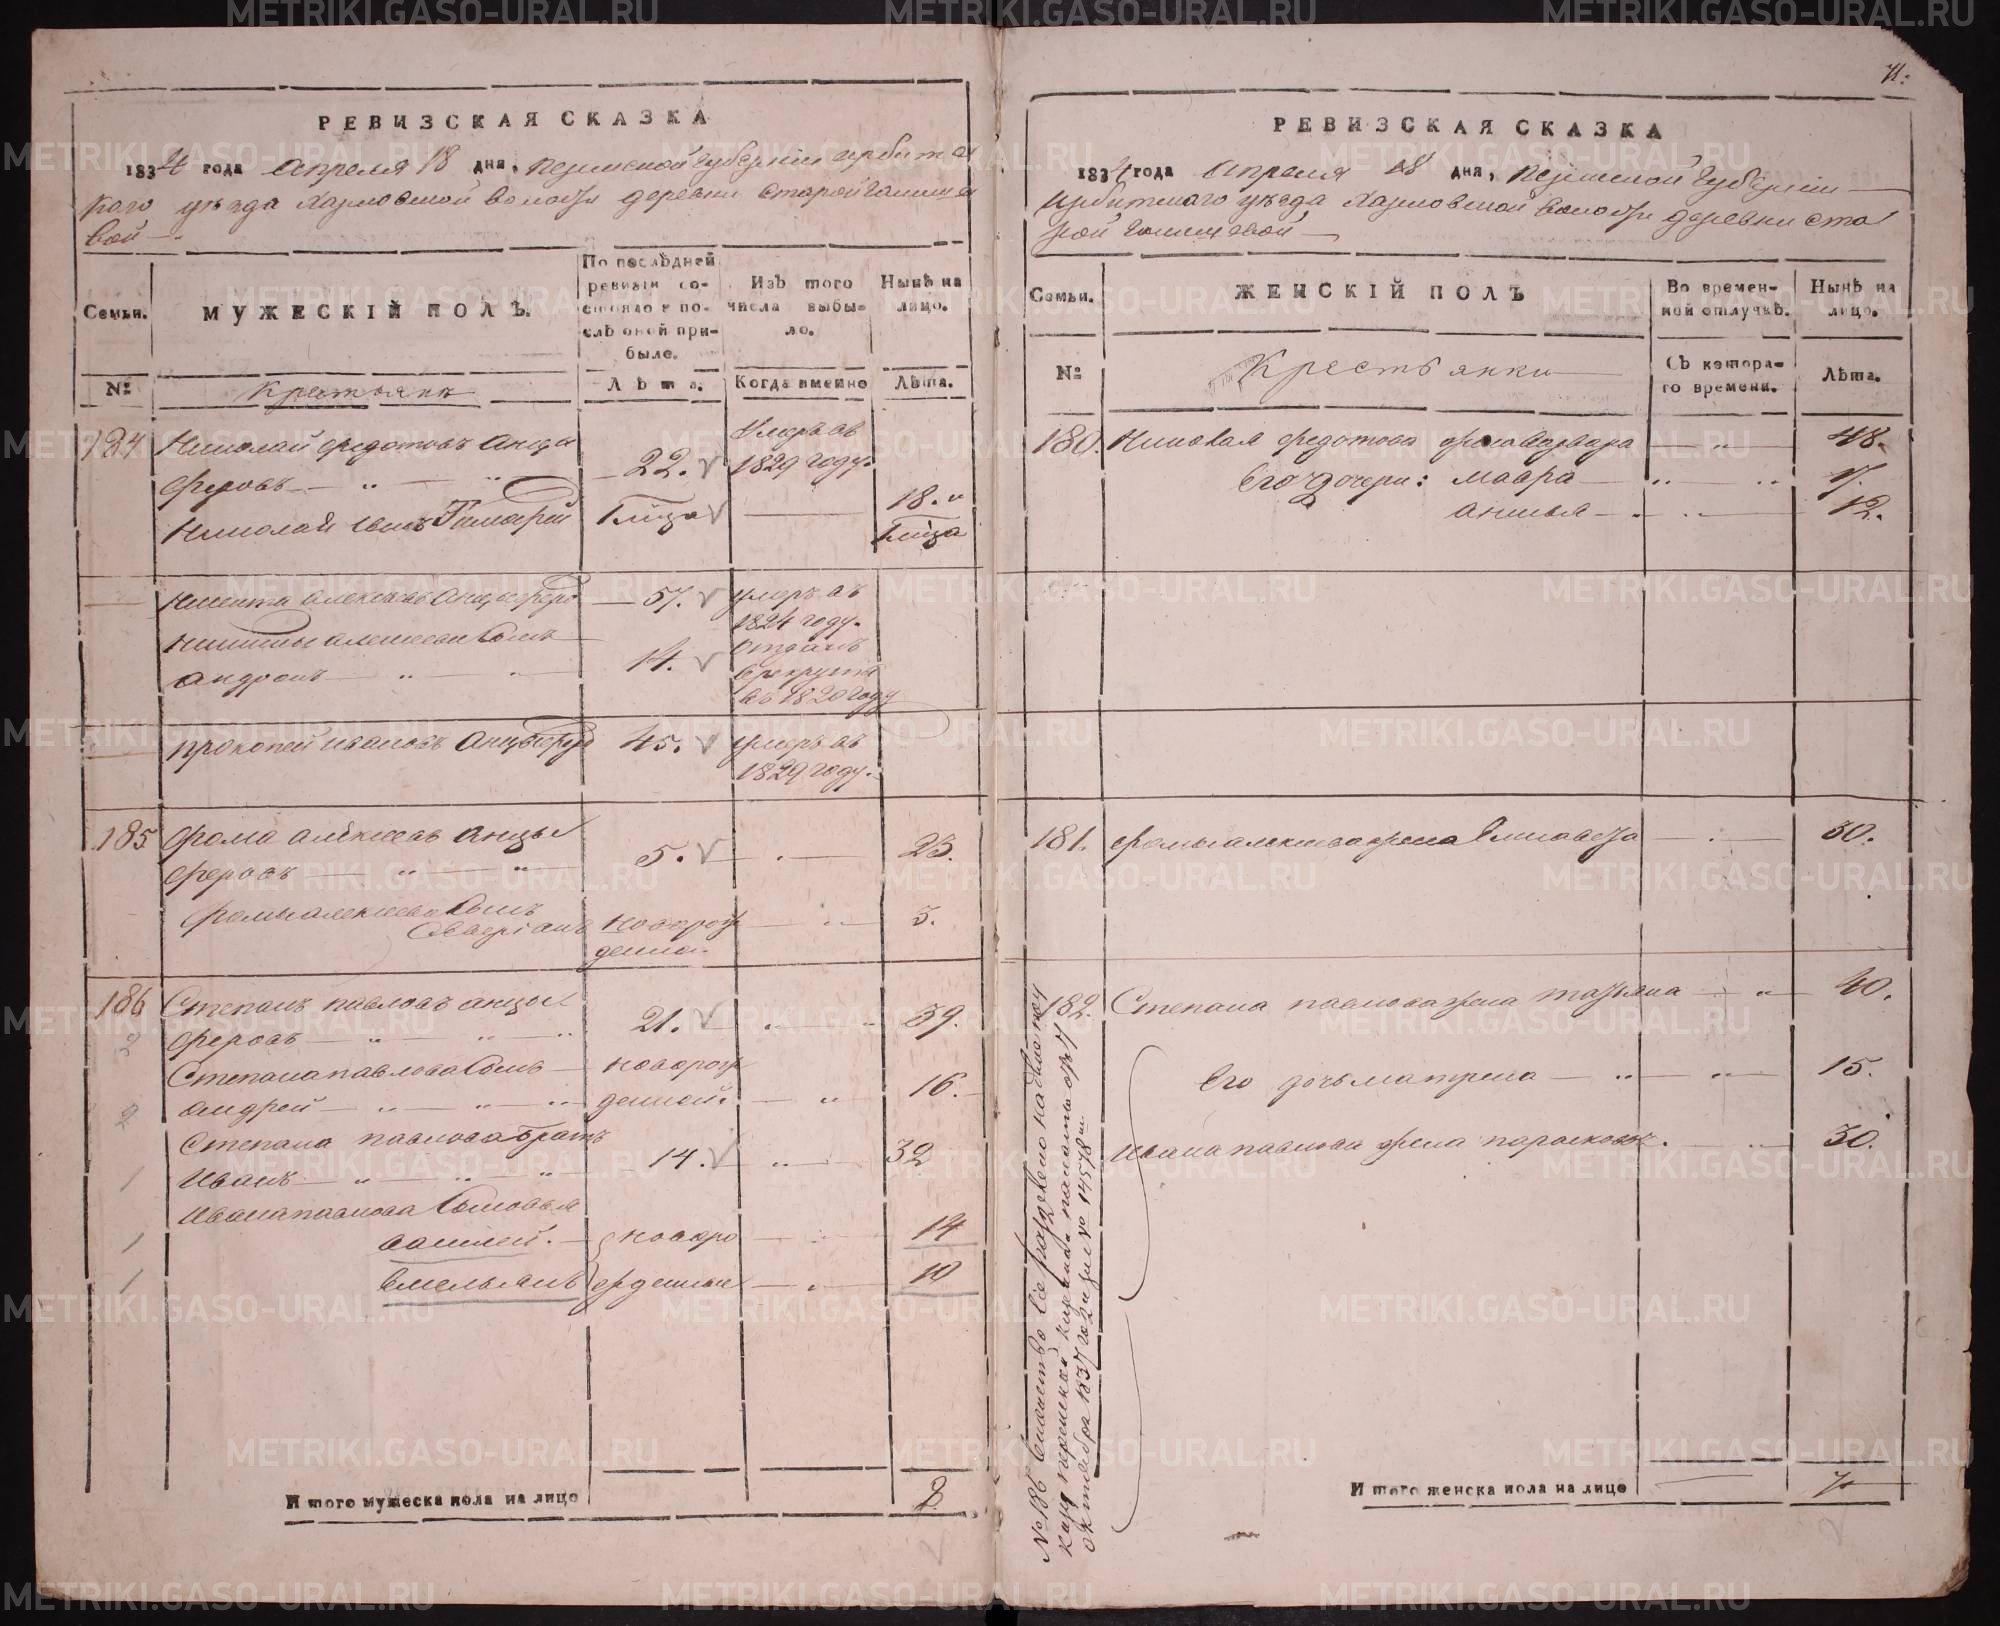 71.
РЕВИЗСКАЯ СКАЗКА
1834 года Апреля 18 дня, Пермской Губернии Ирбитс
каго уезда Харловской волости деревни Старой
вой
Семьи.
МУЖЕСКІЙ ПОЛЪ.
По последней ревизіи состояло и после оной прибыло.
Изъ того числа выбыло.
Ныне на лицо.
№
Крестьянъ
Лета.
Когда именно
Лета.
184 Николай Федотовъ Анцы
феровъ 22. Умеръ въ 1829 году.
Николая сынъ 18.
Никита Алексеевъ Анцыферовъ 57. умеръ въ
1824 году.
Никиты Алексеева сынъ
Андронъ 14. Отданъ
в рекруты
въ 1820 году
Прокопей Ивановъ Анцыферовъ 45. умеръ въ
1829 году.
185 Фома Алексеевъ Анцы
феровъ 5. 23.
Фомы Алексеева сынъ
новорож
денной 5.
186 Степанъ Павловъ Анцы
феровъ 21. 39.
Степана Павлова сынъ новорож
Андрей денной. 16.
Степана Павлова братъ
Иванъ 14. 32
Ивана Павлова сыновья
Василей. новоро 14
Емельянъ жденные 10
Итого мужеска пола на лицо 8
РЕВИЗСКАЯ СКАЗКА
1834 года Апреля 18 дня, Пермской Губернии
Ирбитскаго уезда Харловской волости деревни Ста
рой
Семьи.
ЖЕНСКІЙ ПОЛЪ
Во временной отлучке.
Ныне на лицо.
№
Крестьянки
Съ котораго времени.
Лета.
180. Николая Федотова жена Варвара 48.
Его дочери: Мавра 17.
Анисья 12.
181. Фомы Алексеева жена Елисавета 30.
182. Степана Павлова жена Татьяна 40.
Его дочь Матрена 15.
Ивана Павлова жена Парасковья. 30.
Итого женска пола на лице 7
№ 186 семейство
октября 1837 года за № 14578
METRIKI.GASO-URAL.RU